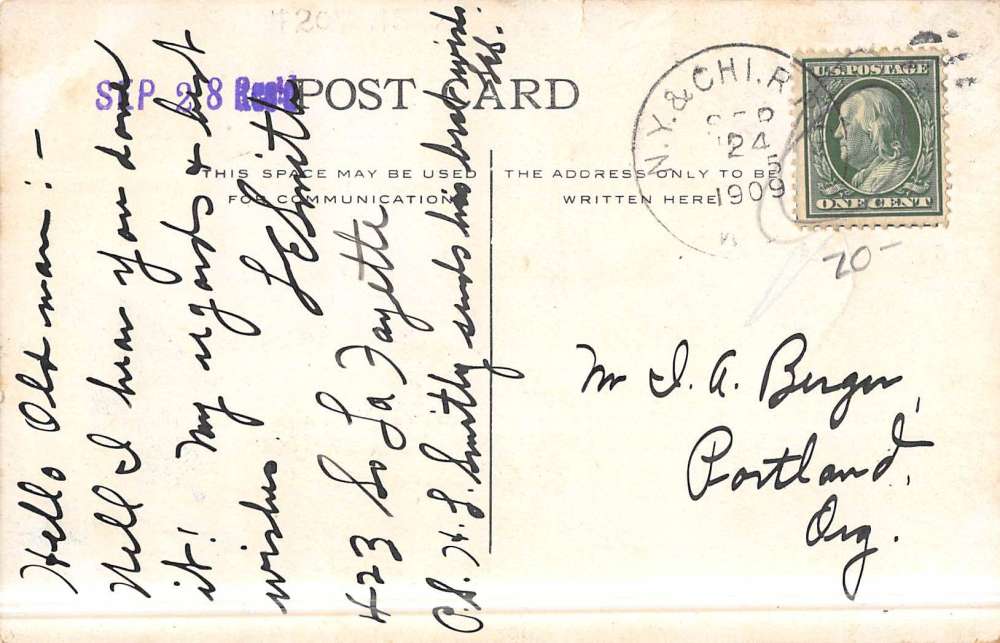 SEP 28 Rec'd
POST CARD
THIS SPACE MAY BE USED
FOR COMMUNICATION
THE ADDRESS ONLY TO BE
WRITTEN HERE
N.Y. & CHI. R.
SEP
24
1909
U.S. POSTAGE
ONE CENT
20-
Hello Old man:-
Well I hear you done
it! My regards & best
wishes.
L E Smith
423 So La Fayette
P.S. H. L. Smithy sends his best wishes
Mr I. A. Berger,
Portland,
Org.